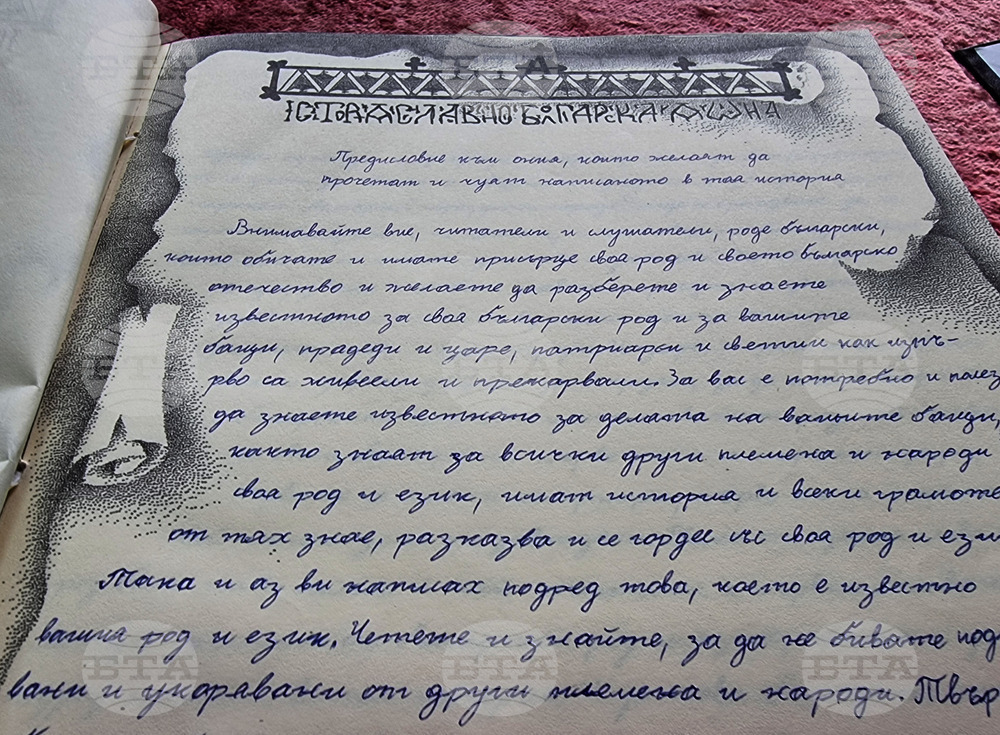 БТА БТА БТА
ІСТОРІЯ СЛАВНО БОЛГАРСКАГО
Предисловие към ония, които желаят да
прочетат и чуят написаното в таа история
Внимавайте вие, читатели и слушатели, роде български,
които обичате и имате присърце своя род и своето българско
отечество и желаете да разберете и знаете
известното за своя български род и за вашите
бащи, прадеди и царе, патриарси и светии как изпъ-
рво са живеели и прекарвали. За вас е потребно и полез
да знаете известното за делата на вашите бащи,
както знаят за всички други племена и народи
своя род и език, имат история и всеки грамоте
от тях знае, разказва и се гордее със своя род и ези
Така и аз ви написах подред това, което е известно
вашия род и език. Четете и знайте, за да не бивате под
вани и укорявани от други племена и народи. Твър